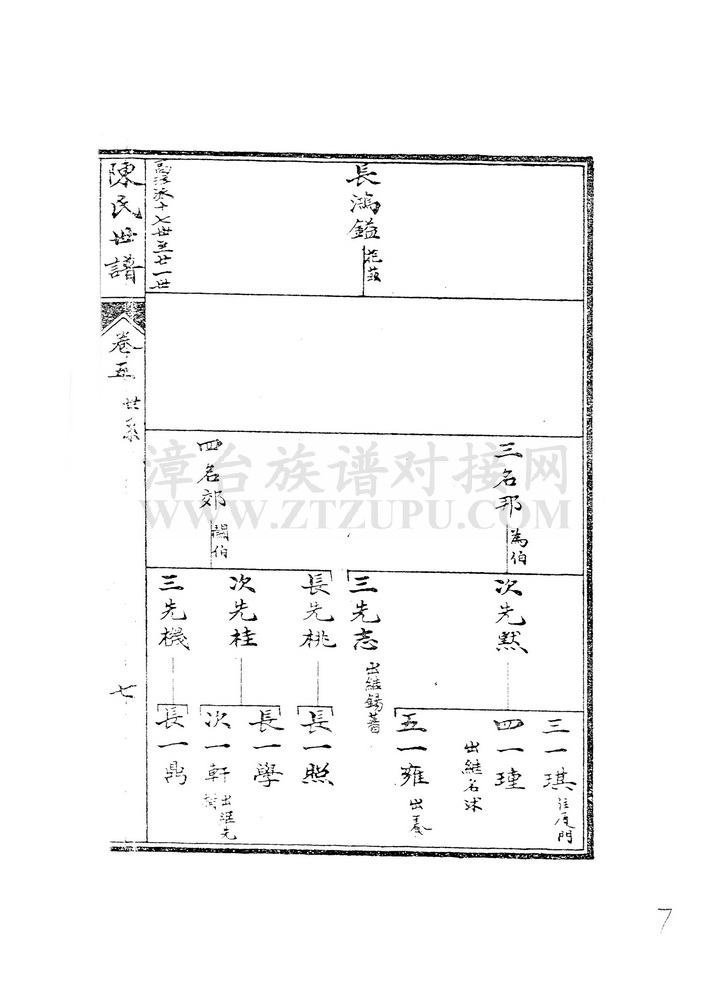 長鴻鎰
三名邦 為伯
四名郊 開伯
次先默
三先志 出継錫蕃
長先桃
次先桂
三先機
三一琪 往厦門
四一瑾 出継名球
五一雍 出養
長一照
長一學
次一軒 出继先
長一鼎
十七世至廿一世
陳氏世譜
卷五 世系
七
漳台族谱对接网
WWW.ZTZUPU.COM
7